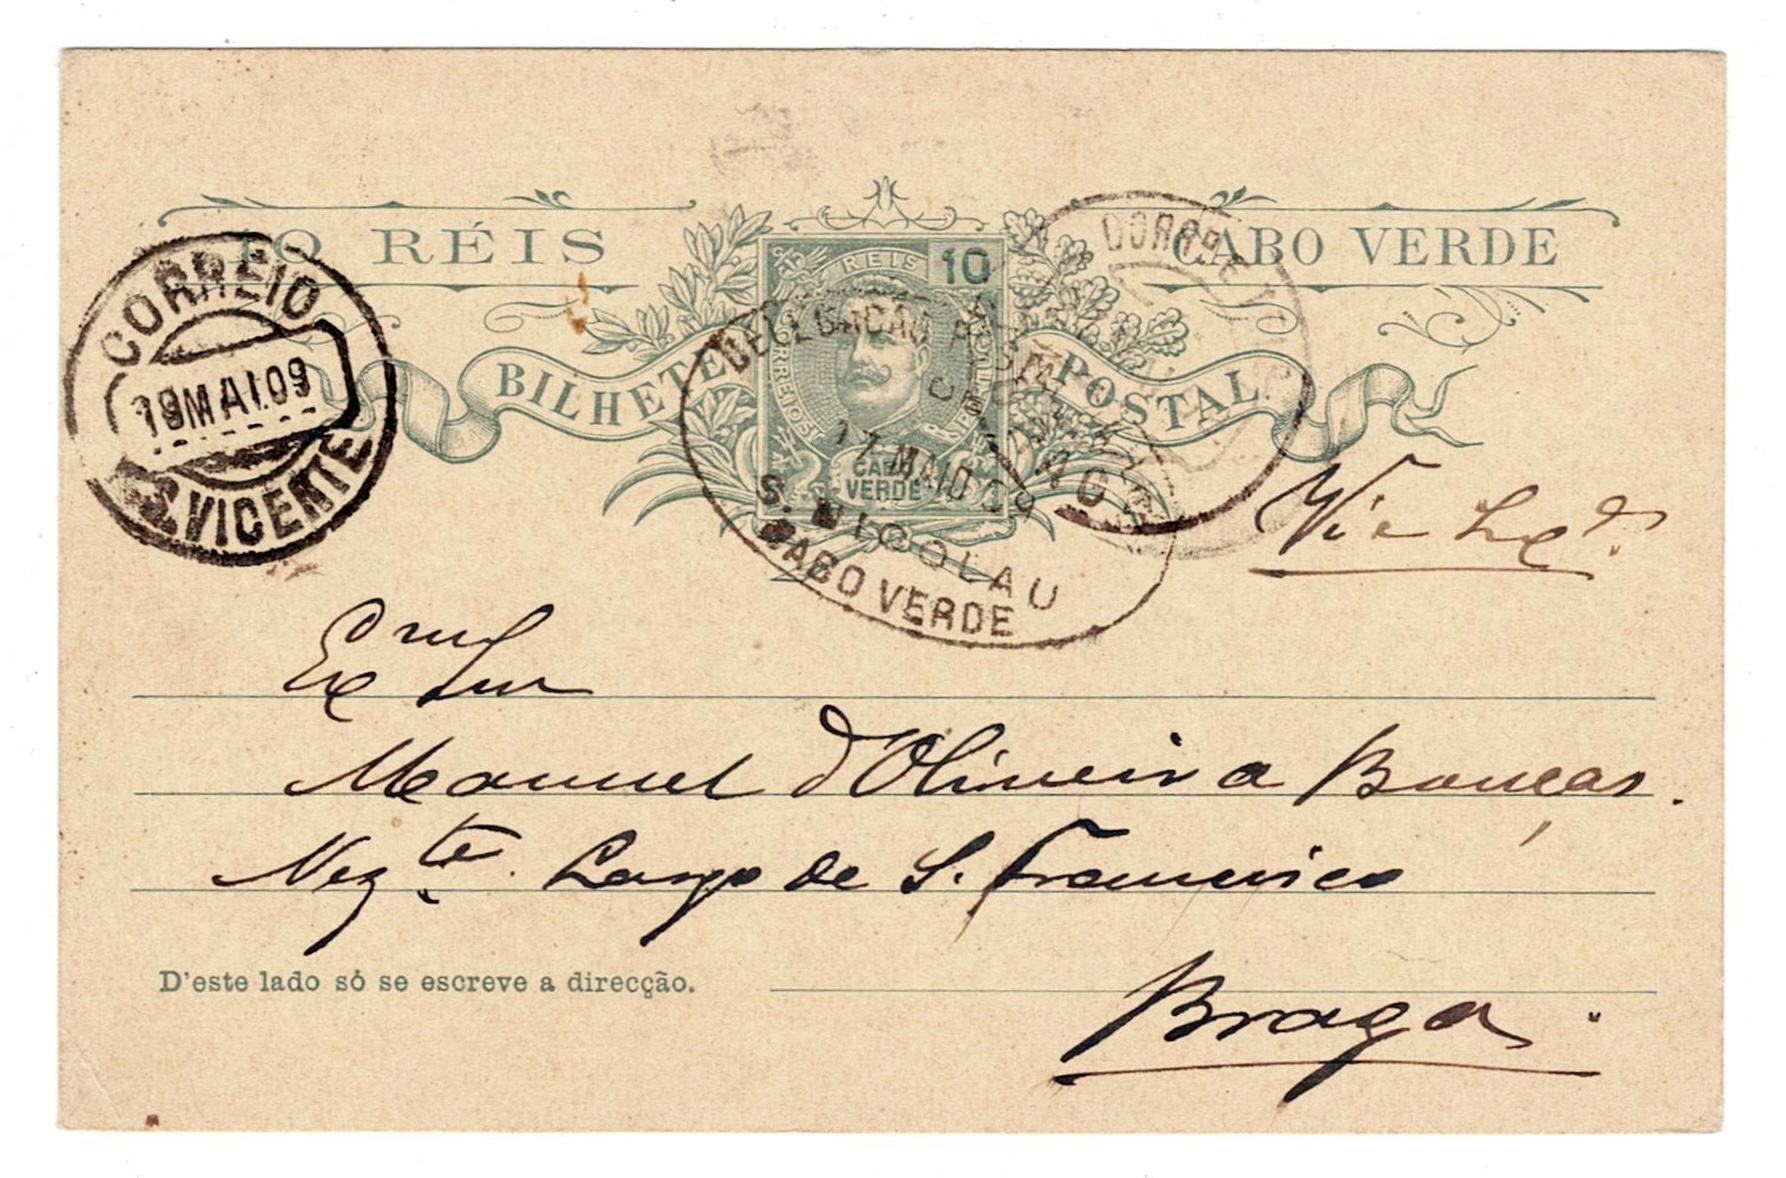 10 RÉIS
CABO VERDE
REIS 10
BILHETE POSTAL
CABO
VERDE
CORREIO
19 MAI.09
S. VICENTE
DELEGAÇÃO
17 MAIO 09
S. NICOLAU
CABO VERDE
CORREIO
Via Lxª.
Exmº Snr
Manuel d'Oliveira Bouças.
Negte. Largo de S. Francisco
D'este lado só se escreve a direcção.
Braga.